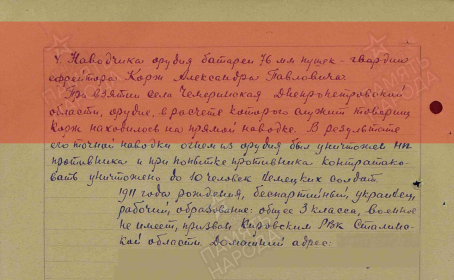 4. Наводчика орудия батареи 76 мм пушек - гвардии
ефрейтора Корж Александра Павловича:
При взятии села Чемеринская Днепропетровской
области, орудие, в расчете которого служит товарищ
Корж находилось на прямой наводке. В результате
его точной наводки огнем из орудия был уничтожен НП
противника и при попытке противника контратако-
вать уничтожено до 10 человек немецких солдат
1911 года рождения, беспартийный, украинец,
рабочий, образование: общее 3 класса, военное
не имеет, призван Кировским РВК Сталинс-
кой области. Домашний адрес:
ПАМЯТЬ НАРОДА